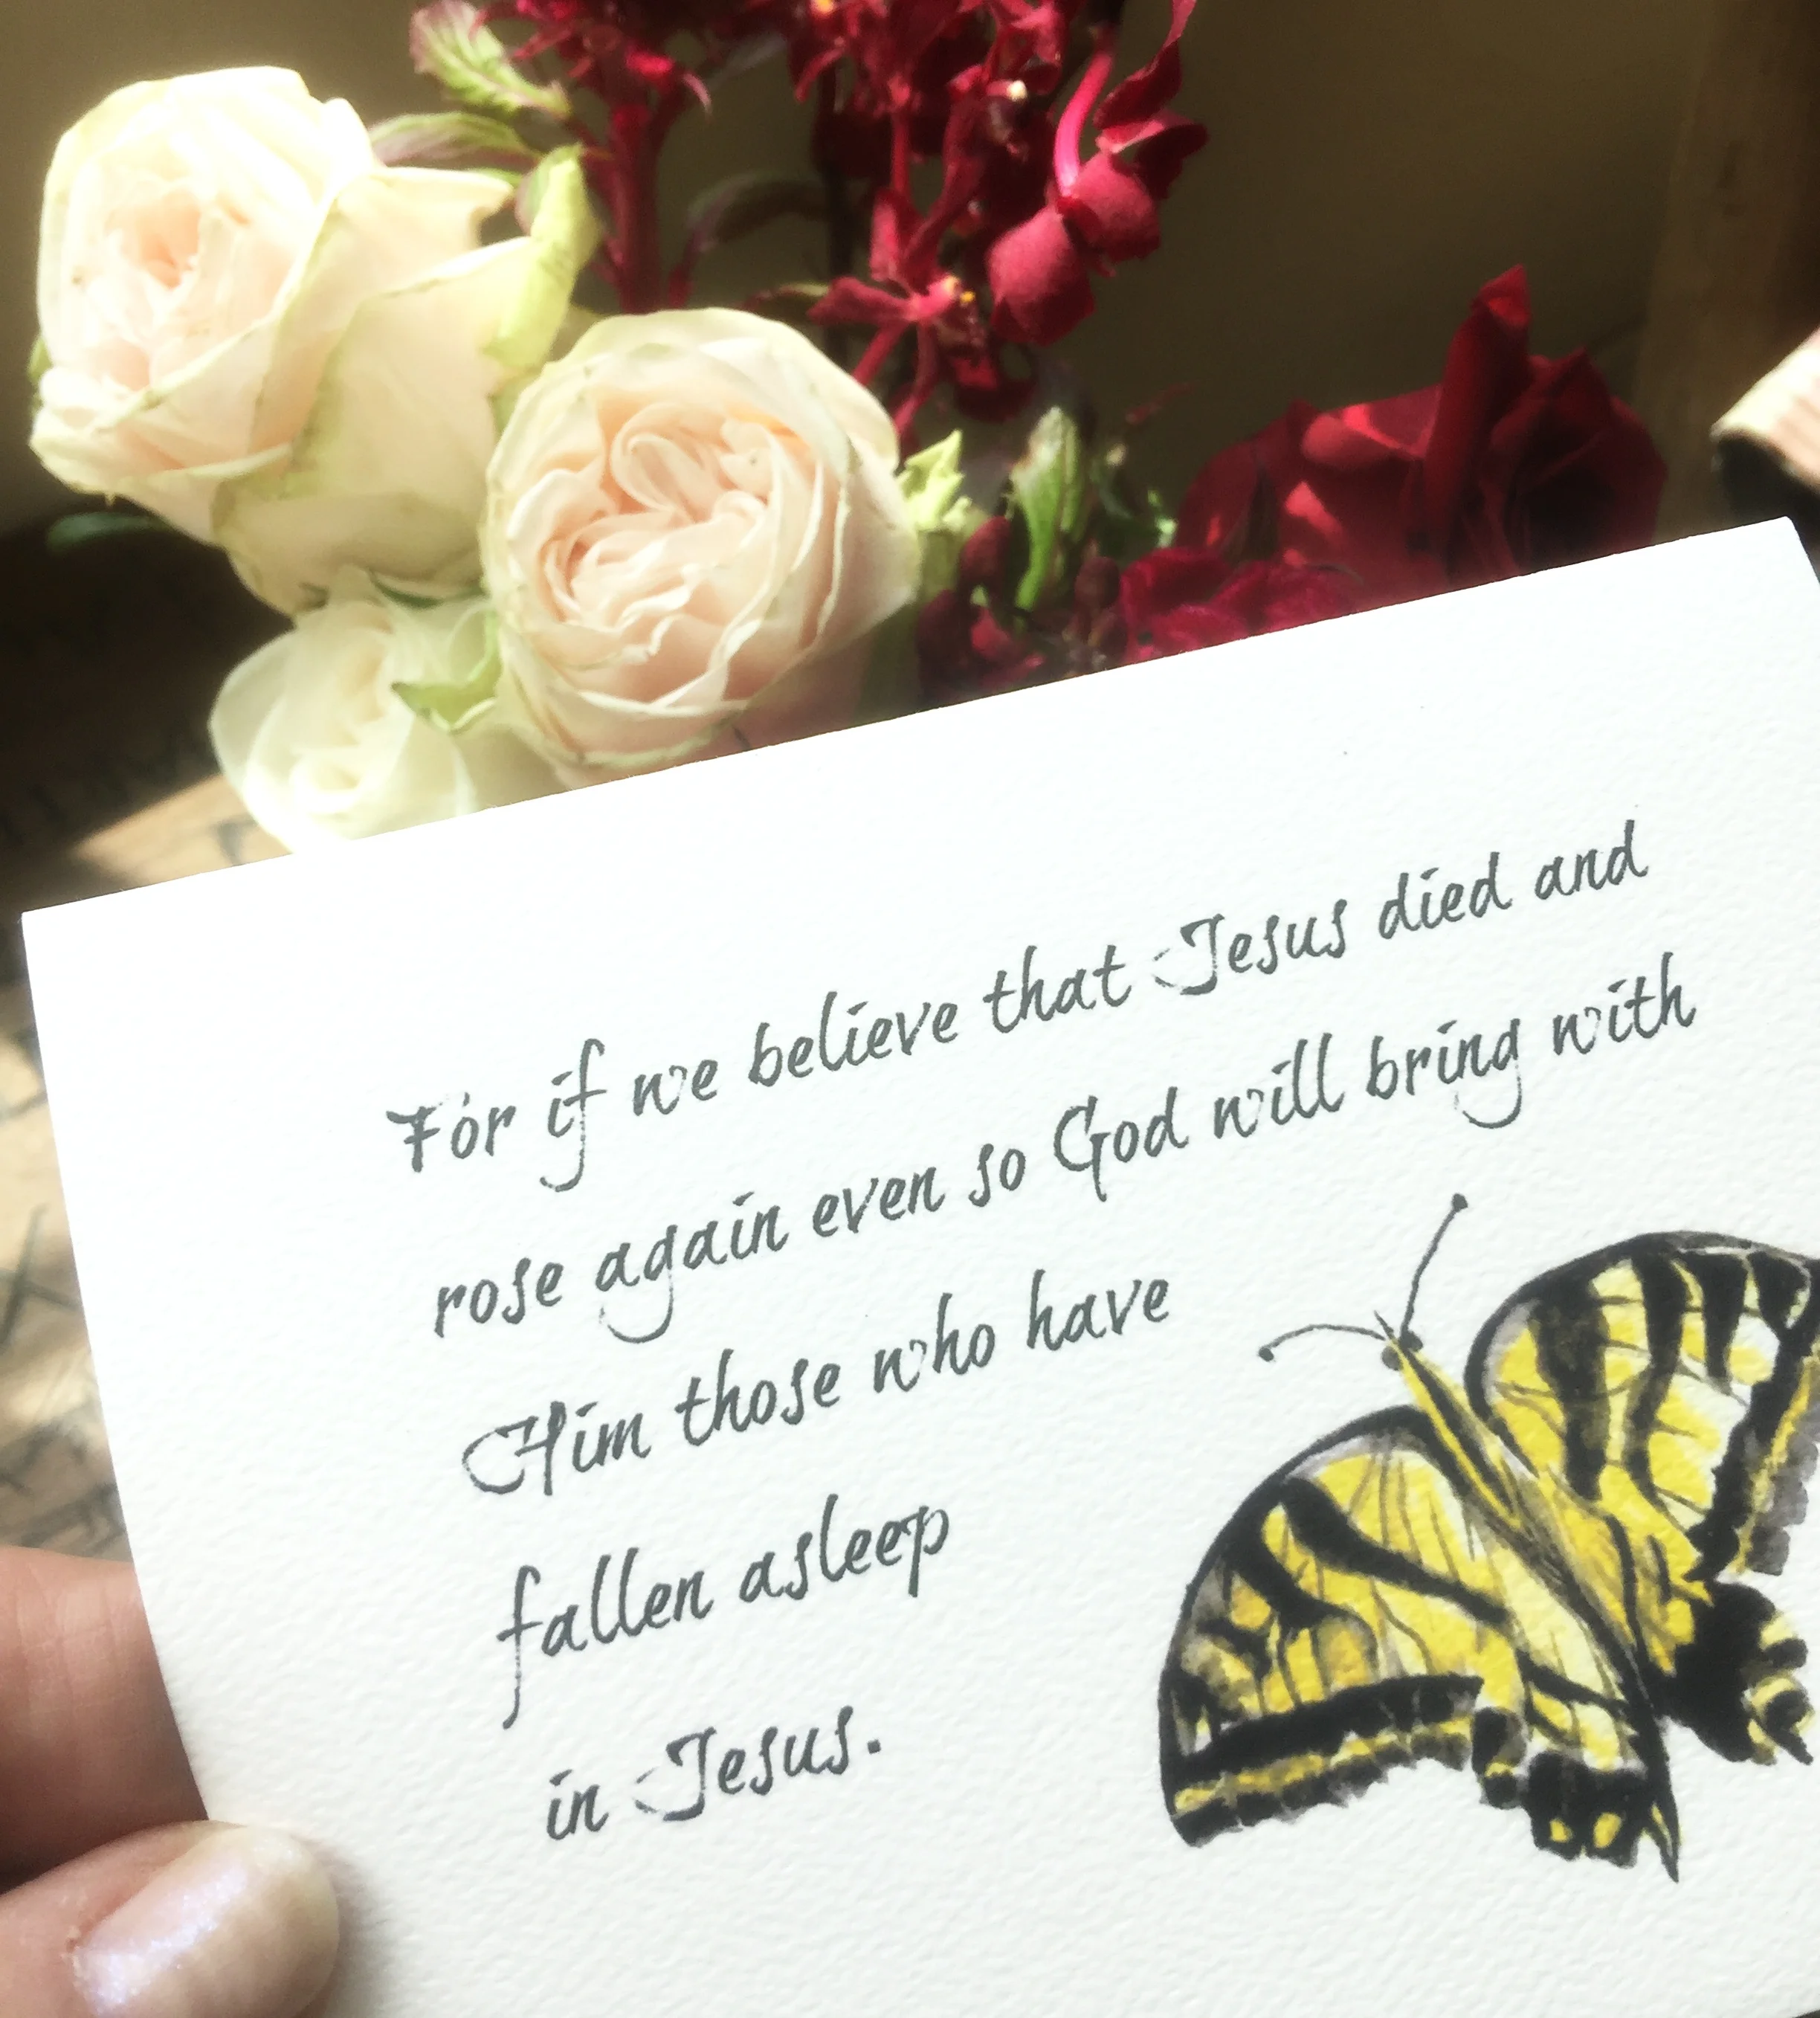 For if we believe that Jesus died and
rose again even so God will bring with
Him those who have
fallen asleep
in Jesus.